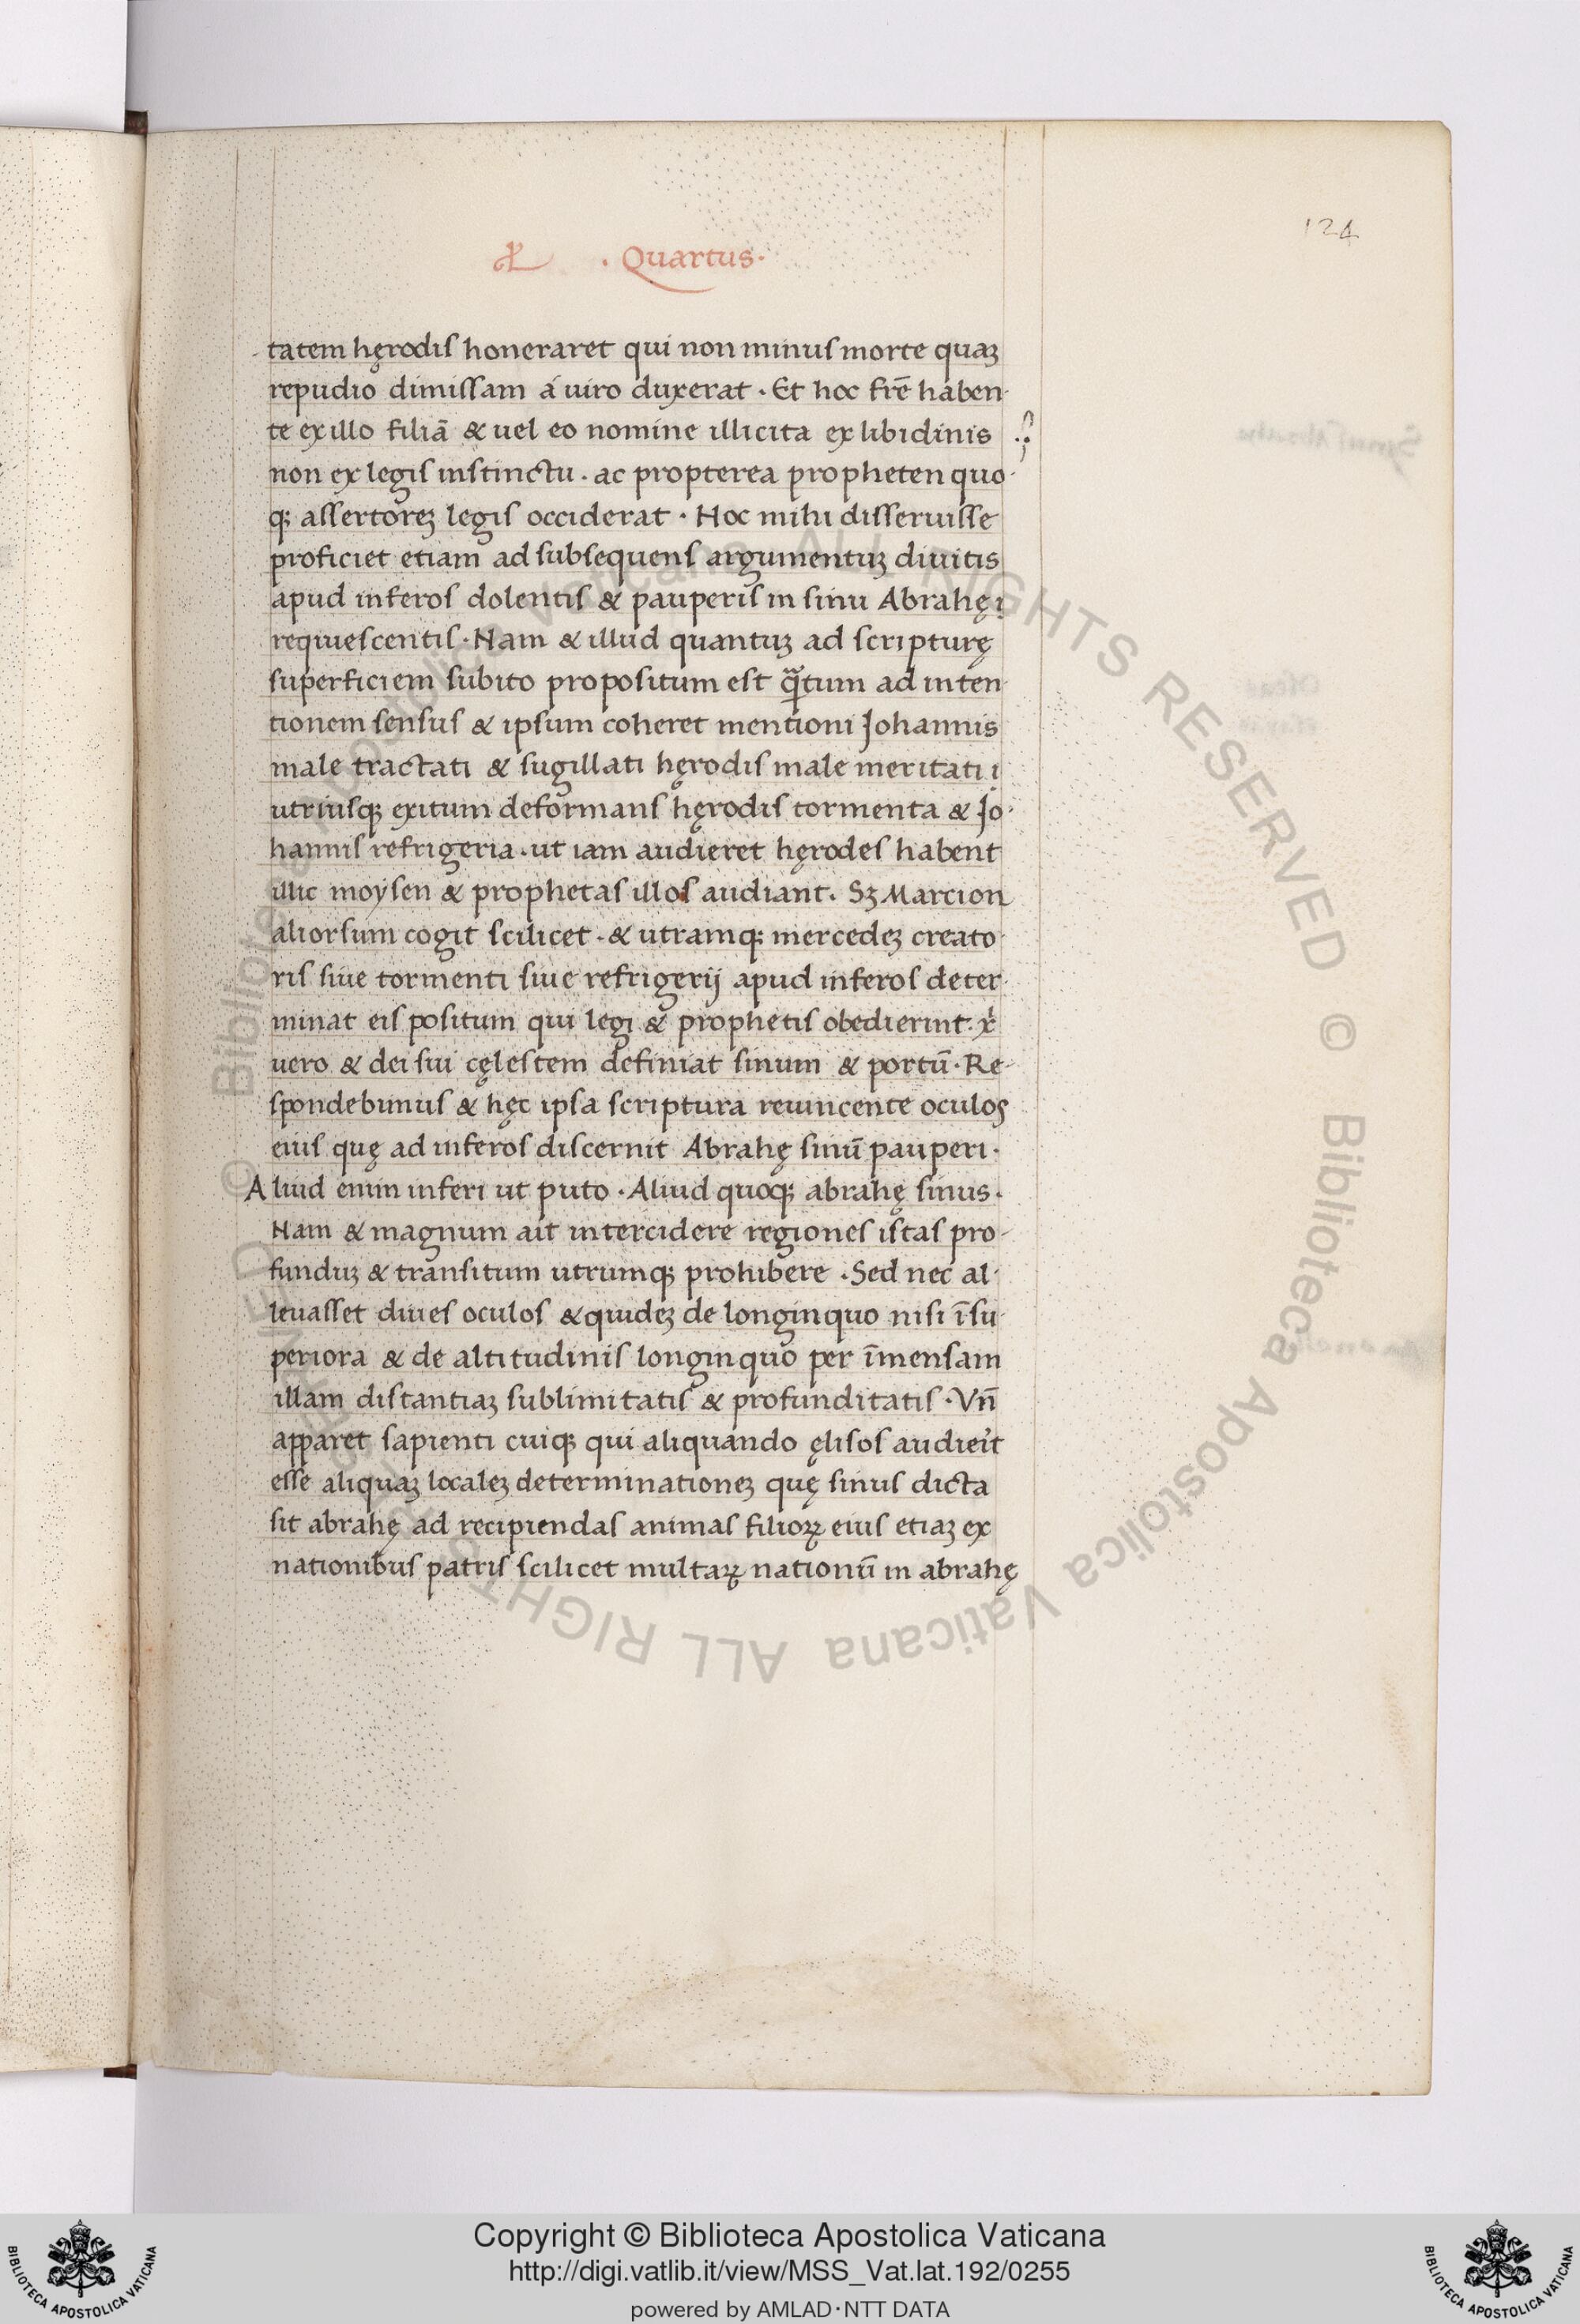 124
· Quartus ·
tatem hęrodis honeraret qui non minus morte quaꝫ
repudio dimissam á uiro duxerat · Et hoc frē haben-
te ex illo filiā & uel eo nomine illicita ex libidinis
non ex legis instinctu · ac propterea propheten quo-
qꝫ assertoreꝫ legis occiderat · Hoc mihi disseruisse
proficiet etiam ad subsequens argumentuꝫ diuitis
apud inferos dolentis & pauperis in sinu Abrahę
requiescentis · Nam & illud quantuꝫ ad scripturę
superficiem subito propositum est qᷓtum ad inten-
tionem sensus & ipsum coheret mentioni Johannis
male tractati & sugillati hęrodis male meritati
utriusqꝫ exitum deformans hęrodis tormenta & Jo-
hannis refrigeria · ut iam audieret hęrodes habent
illic moysen & prophetas illos audiant. Sꝫ Marcion
aliorsum cogit scilicet · & utramqꝫ mercedeꝫ creato-
ris siue tormenti siue refrigerij apud inferos deter-
minat eis positum qui legi & prophetis obedierint. xᷓ
uero & dei sui cęlestem definiat sinum & portū · Re-
spondebimus & hęc ipsa scriptura reuincente oculos
eius quę ad inferos discernit Abrahę sinū pauperi ·
Aliud enim inferi ut puto · Aliud quoqꝫ abrahę sinus ·
Nam & magnum ait intercidere regiones istas pro-
funduꝫ & transitum utrumqꝫ prohibere · Sed nec al-
leuasset diues oculos & quideꝫ de longinquo nisi ī su-
periora & de altitudinis longinquo per īmensam
illam distantiaꝫ sublimitatis & profunditatis · Vn̄
apparet sapienti cuiqꝫ qui aliquando ęlisos audieit
esse aliquaꝫ localeꝫ determinationeꝫ quę sinus dicta
sit abrahę ad recipiendas animas filioꝝ eius etiaꝫ ex
nationibus patris scilicet multaꝝ nationū in abrahę
© Biblioteca Apostolica Vaticana ALL RIGHTS RESERVED © Biblioteca Apostolica Vaticana ALL RIGHTS RESERVED
BIBLIOTECA APOSTOLICA VATICANA
Copyright © Biblioteca Apostolica Vaticana
http://digi.vatlib.it/view/MSS_Vat.lat.192/0255
powered by AMLAD·NTT DATA
BIBLIOTECA APOSTOLICA VATICANA